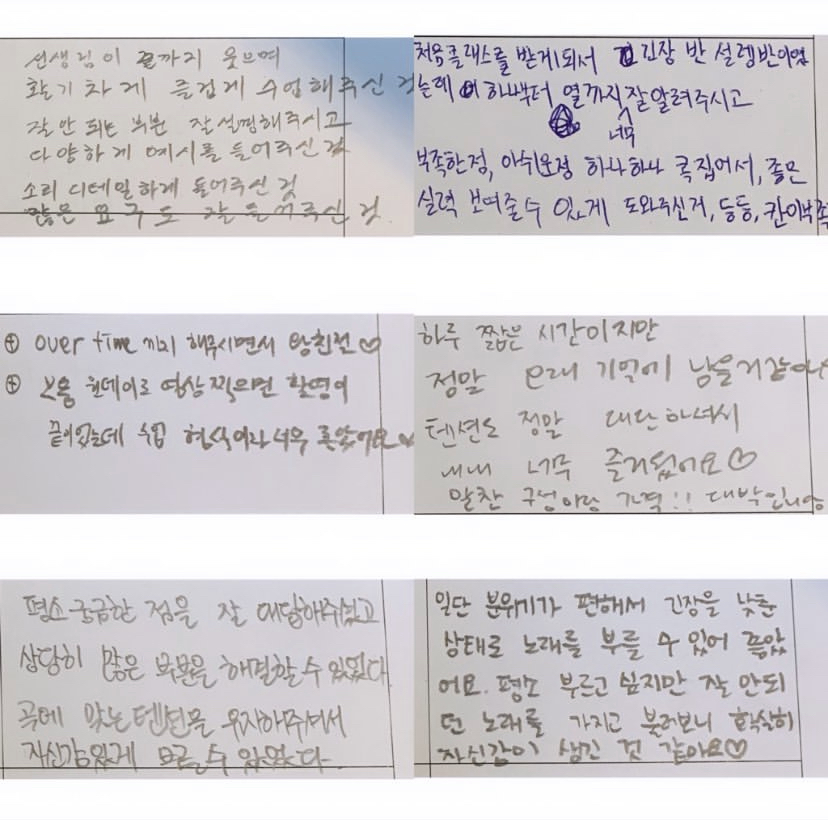 선생님이 끝까지 웃으며
활기차게 즐겁게 수업해주신 것
잘 안 되는 부분 잘 설명해주시고
다양하게 예시를 들어주신 것
소리 디테일하게 들어주신 것
많은 요구도 잘 들어주신 것.
처음클래스를 받게되서 긴장 반 설렘반이였
는데 하나부터 열까지 너무 잘알려주시고
부족한점, 아쉬운점 하나하나 콕 집어서, 좋은
실력 보여줄수 있게 도와주신거, 등등, 칸이부족
⊕ over time 까지 해주시면서 왕친절♡
⊕ 보통 원데이로 영상 찍으면 촬영이
끝이었는데 수업 형식이라 너무 좋았어요♡
하루 짧은 시간이지만
정말 오래 기억에 남을거같아
텐션도 정말 대단하셔서
내내 너무 즐거웠어요♡
알찬 구성이랑 가격!! 대박입니당
평소 궁금한 점을 잘 대답해주셨고
상당히 많은 부분을 해결할 수 있었다
곡에 맞는 텐션을 유지해주셔서
자신감있게 부를 수 있었다.
일단 분위기가 편해서 긴장을 낮춘
상태로 노래를 부를 수 있어 좋았
어요. 평소 부르고 싶지만 잘 안되
던 노래를 가지고 불러보니 확실히
자신감이 생긴 것 같아요♡